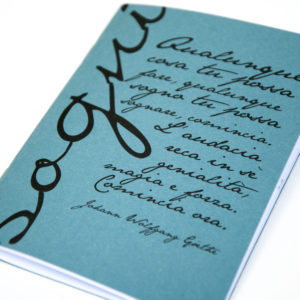 Sogni
Qualunque
cosa tu possa
fare, qualunque
sogno tu possa
sognare, comincia.
L'audacia
reca in sè
genialità,
magia e forza.
Comincia ora.
Johann Wolfgang Goethe